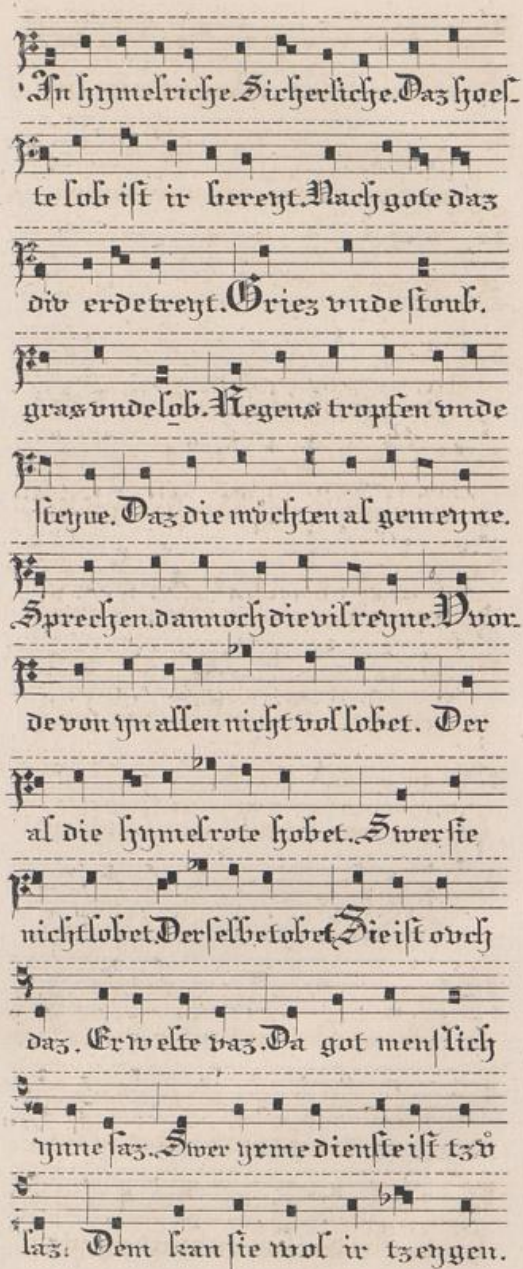 In hymelriche. Sicherliche. Daz hoes-
te lob ist ir bereyt. Nach gote daz
div erde treyt. Griez vnde stoub.
gras vnde lob. Regens tropfen vnde
steyne. Daz die mvchten al gemeyne.
Sprechen. dannoch die vil reyne. Vvor-
de von yn allen nicht vol lobet. Der
al die hymelrote hobet. Swer sie
nicht lobet. Der selbe tobet. Sie ist ovch
daz. Erwelte vaz. Da got menslich
ynne saz. Swer yrme dienste ist tzvͦ
laz. Dem kan sie wol ir tzeygen.